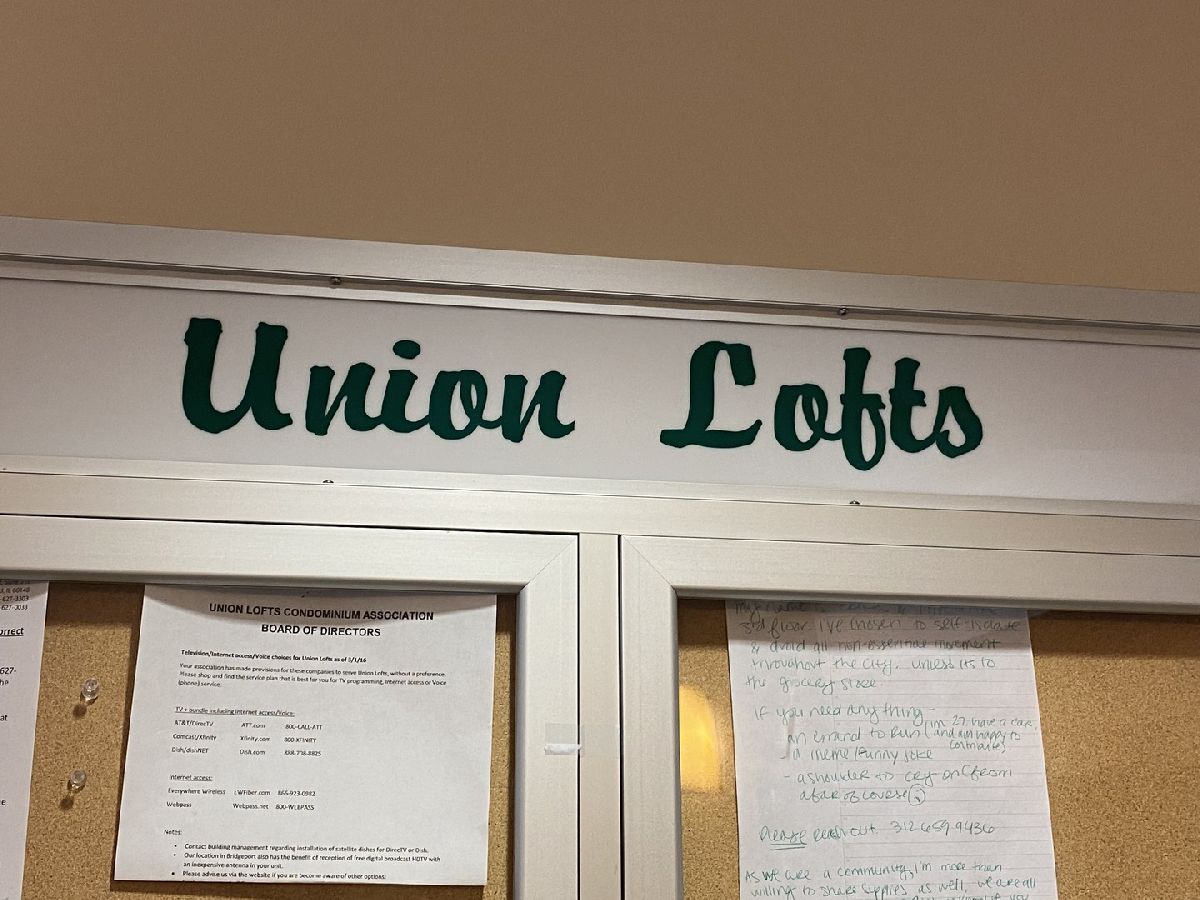 Union Lofts
UNION LOFTS CONDOMINIUM ASSOCIATION
BOARD OF DIRECTORS
Television/Internet access/Voice choices for Union Lofts as of 3/1/16
Your association has made provisions for these companies to serve Union Lofts, without a preference.
Please shop and find the service plan that is best for you for TV programming, Internet access or Voice
(phone) service.
TV + bundle including Internet access/Voice:
AT&T/DirecTV ATT.com 800-CALL-ATT
Comcast/Xfinity Xfinity.com 800-XFINITY
Dish/dishNET Dish.com
Internet access:
Everywhere Wireless EWFiber.com
Webpass Webpass.net 800-WEBPASS
Notes:
• Contact building management regarding installation of satellite dishes for DirecTV or Dish.
• Our location in Bridgeport also has the benefit of reception of free digital broadcast HDTV with
an inexpensive antenna in your unit.
• Please advise us via the website if you are become aware of other options.
orrect
627-
at
My name
3rd floor I've chosen to self-isolate
& avoid all non-essential movement
throughout the city, unless its to
the grocery store.
If you need anything -
- an errand to run (I'm 27, have a car
and am happy to
contribute)
- a meme/funny joke
- a shoulder to cry on (from
afar of course)
Please reach out 312-659-9436
As we are a community, I'm more than
willing to share supplies as well, we are all